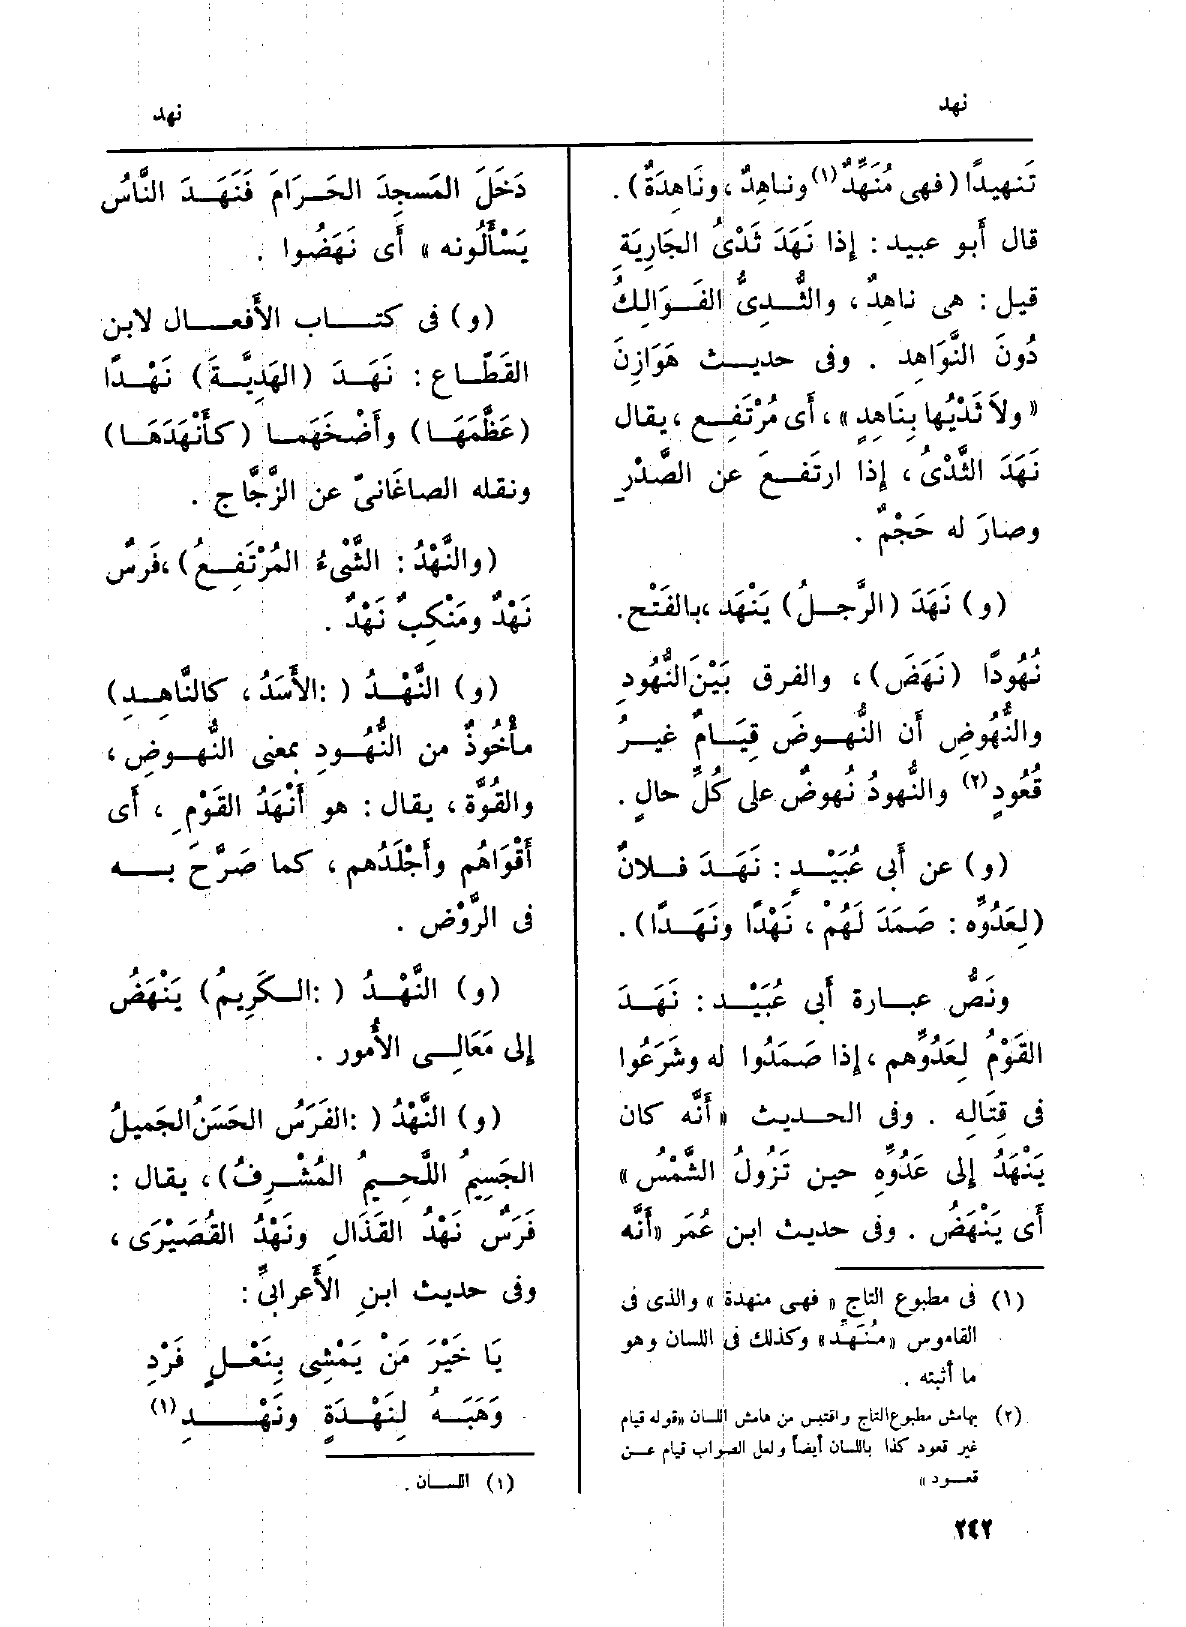 نهد
نهد
تَنهيدًا (فهى مُنَهِّدٌ(١) وناهِدٌ، ونَاهِدَةٌ) .
قال أَبو عبيد : إِذا نَهَدَ ثَدْىُ الجَارِيَةِ
قيل : هى ناهِدٌ ، والثُّدِىُّ الفَوَالِكُ
دُونَ النَّوَاهِد . وفى حديث هَوَازِنَ
« ولاَ ثَدْيُها بِنَاهِدٍ » ، أَى مُرْتَفِعٍ ، يقال
نَهَدَ الثَّدْىُ ، إِذا ارتَفعَ عن الصَّدْرِ
وصارَ له حَجْمٌ .
(و) نَهَدَ (الرَّجلُ) يَنْهَد ، بالفَتْح .
نُهُودًا (نَهَضَ) ، والفرق بَيْنَ النُّهُودِ
والنُّهُوضِ أَن النُّهوضَ قِيَامٌ غيرُ
قُعُودٍ(٢) والنُّهودُ نُهوضٌ على كُلِّ حالٍ .
(و) عن أَبى عُبَيْدٍ : نَهَدَ فلانٌ
(لِعَدُوِّه : صَمَدَ لَهُمْ ، نَهْدًا ونَهَدًا) .
ونَصُّ عبارة أَبى عُبَيْد : نَهَدَ
القَوْمُ لِعَدُوِّهم ، إِذا صَمَدُوا له وشَرَعُوا
فى قِتَالِه . وفى الحديث « أَنَّه كان
يَنْهَدُ إِلى عَدُوِّهِ حين تَزُولُ الشَّمْس »
أَى يَنْهَضُ . وفى حديث ابن عُمَر « أَنَّه
(١) فى مطبوع التاج « فهى منهدة » والذى فى
القاموس « مُنَهِّد » وكذلك فى اللسان وهو
ما أثبته .
(٢) بهامش مطبوع التاج واقتبس من هامش اللسان « قوله قيام
غير قعود كذا باللسان أيضاً ولعل الصواب قيام عن
قعود »
٢٤٢
دَخَلَ المَسجِدَ الحَرامَ فَنَهَدَ النَّاسُ
يَسْأَلُونه » أَى نَهَضُوا .
(و) فى كتاب الأَفعال لابن
القَطّاع : نَهَدَ (الهَدِيَّةَ) نَهْدًا
(عَظَّمَهَا) وأَضْخَمَها (كأَنْهَدَهَا)
ونقله الصاغَانىّ عن الزَّجَّاج .
(والنَّهْدُ : الشَّىْءُ المُرْتَفِعُ) ، فَرسٌ
نَهْدٌ ومَنْكِبٌ نَهْدٌ .
(و) النَّهْدُ ( : الأَسَدُ ، كالنَّاهِدِ)
مأْخُوذٌ من النُّهُودِ بمعنى النُّهوضِ ،
والقُوَّة ، يقال : هو أَنْهَدُ القَوْمِ ، أَى
أَقْوَاهُم وأَجْلَدُهم ، كما صَرَّحَ به
فى الرَّوْض .
(و) النَّهْدُ ( : الكَرِيمُ) يَنْهَضُ
إِلى مَعَالِى الأُمور .
(و) النَّهْدُ ( : الفَرَسُ الحَسَنُ الجَميلُ
الجَسِيمُ اللَّحِيمُ المُشْرِفُ) ، يقال :
فَرَسٌ نَهْدُ القَذَالِ ونَهْدُ القُصَيْرَى ،
وفى حديث ابنِ الأَعرابىِّ :
يَا خَيْرَ مَنْ يَمْشِى بِنَعْلٍ فَرْدِ
وَهَبَهُ لِنَهْدَةٍ ونَهْدِ(١)
(١) اللسان .